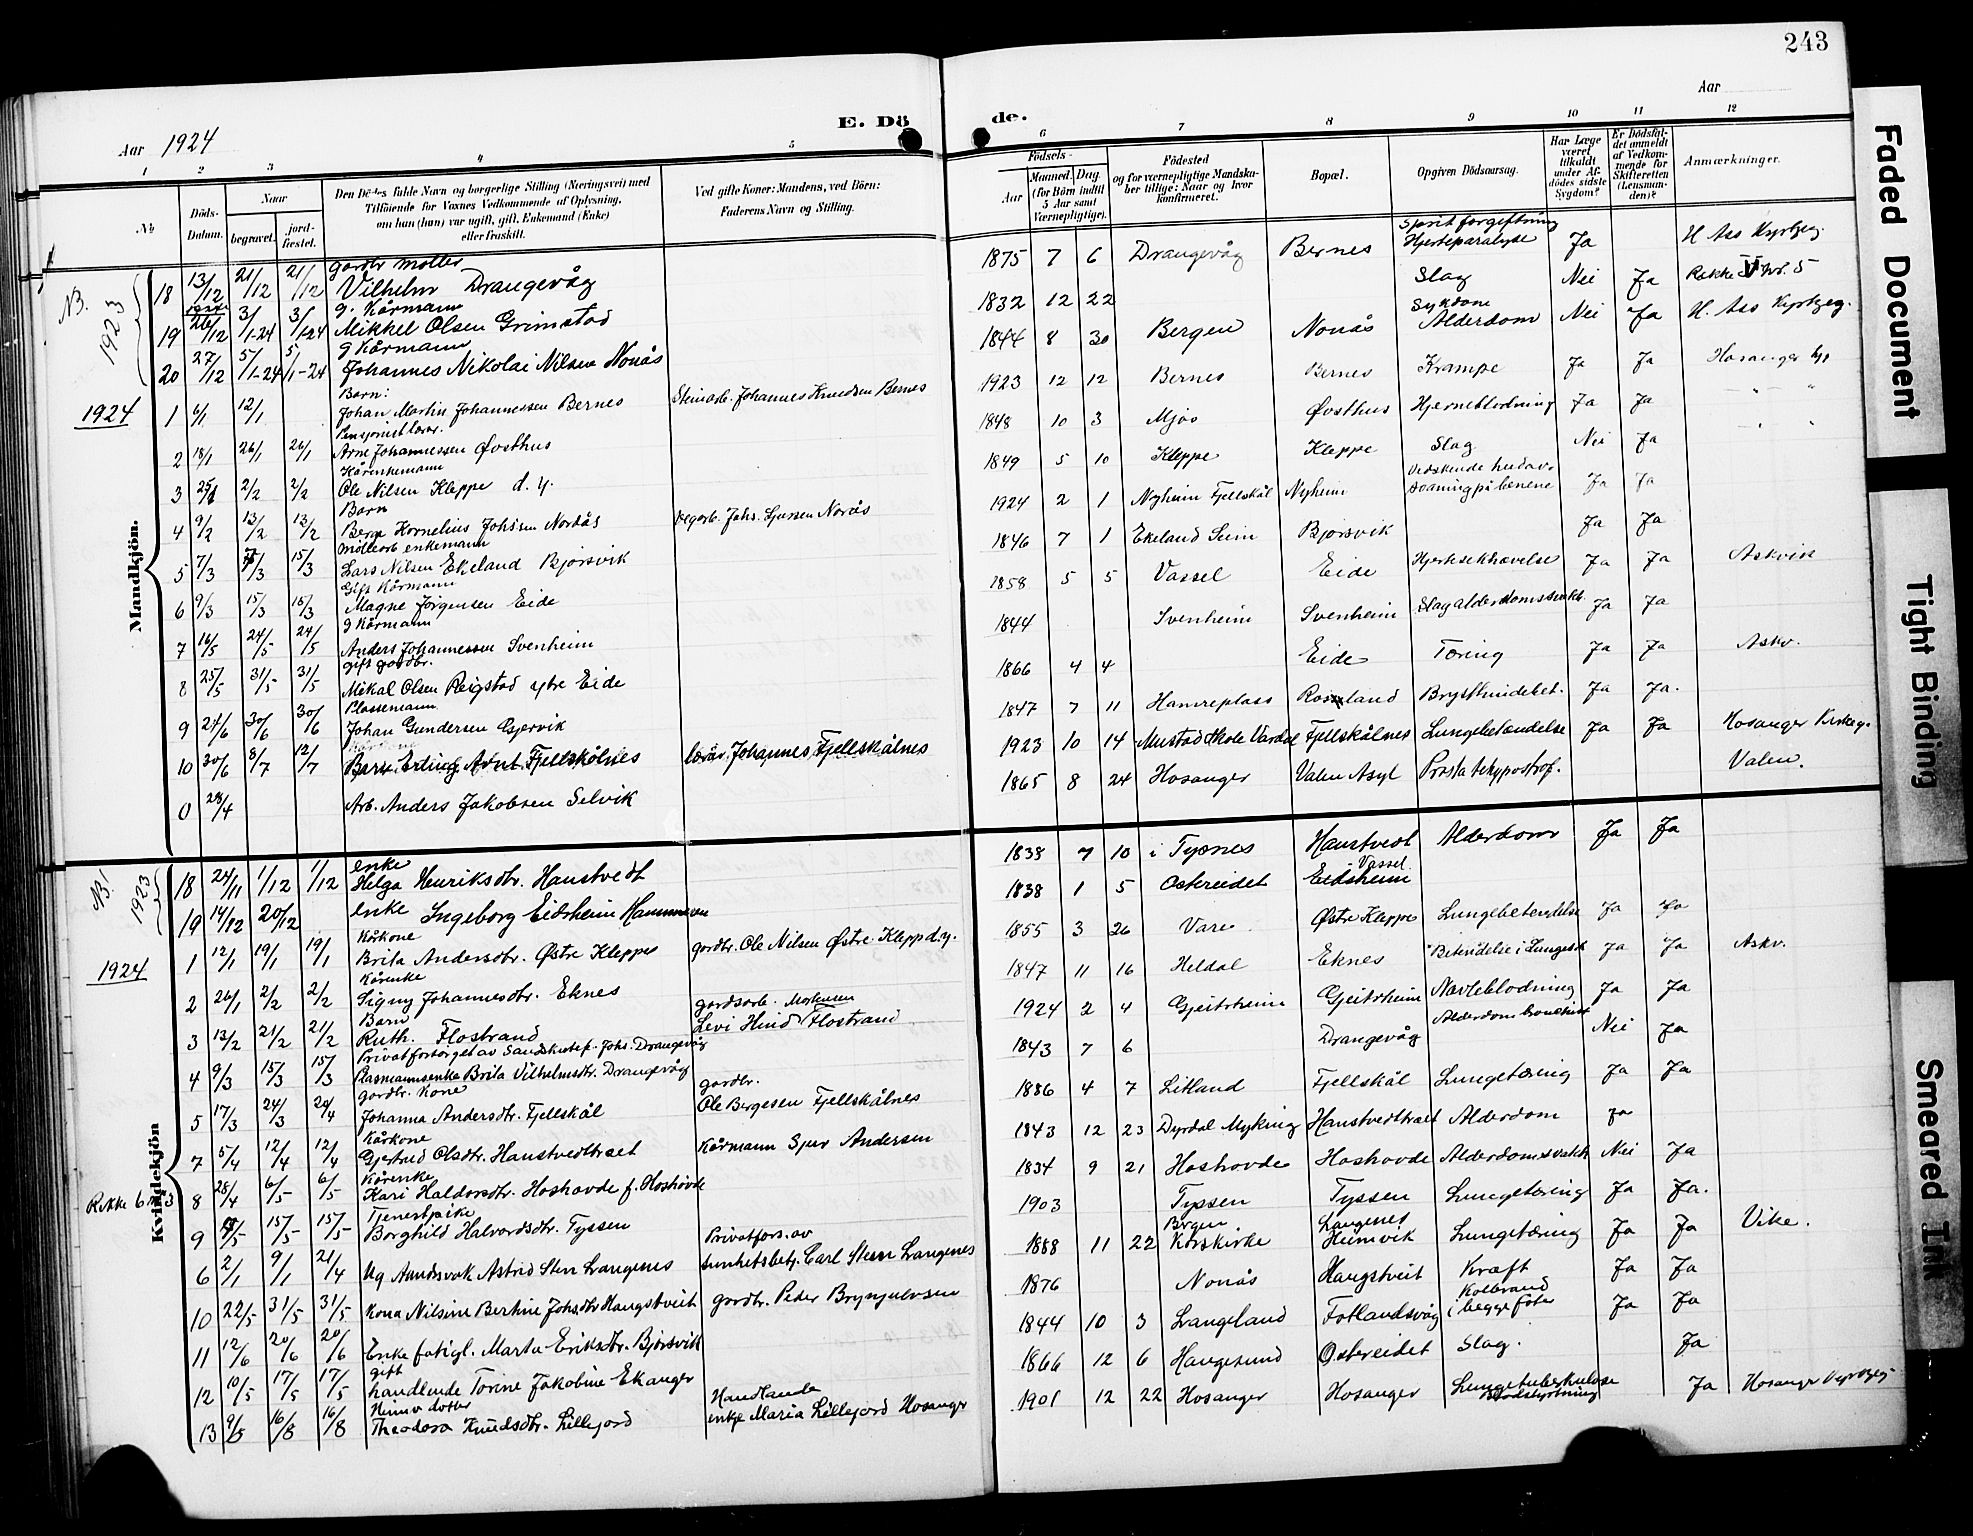 243
Aar
Aar 1924
E. Dö de.
1 2 3 4 5 6 7 8 9 10 11 12
No
Döds-Datum.
Naar
begravet.
jord-fæstet.
Den Dödes fulde Navn og borgerlige Stilling (Næringsvei) med
Tilföiende for Voxnes Vedkommende af Oplysning,
om hun (han) var ugift, gift, Enkemand (Enke)
eller fraskilt.
Ved gifte Koner: Mandens, ved Börn:
Faderens Navn og Stilling.
Födsels-
Aar
Maaned. Dag.
(for Börn indtil
5 Aar samt
Værnepligtige).
Födested
og for værnepligtige Mandska-
ber tillige: Naar og hvor
konfirmeret.
Bopæl.
Opgiven Dödsaarsag.
Har Læge
været
tilkaldt
under Af-
dödes sidste
Sygdom?
Er Dödsfal-
det anmeldt
af Vedkom-
mende for
Skifteretten
(Lensman-
den)?
Anmærkninger.
Mandkjön.
NB. 1923
gardbr møller
18 13/12 21/12 21/12 Vilhelm Drangevåg 1875 7 6 Drangevåg Bernes Spritforgiftning Hjerteparalyse Ja
g. Kårmann
19 26/12 3/1-24 3/1-24 Mikkel Olsen Grimstad 1832 12 22 Slag Nei Ja
g Kårmann
20 27/12 5/1-24 5/1-24 Johannes Nikolai Nilsen Nonås 1844 8 30 Bergen Nonås Alderdom Nei Ja
1924
Barn:
1 6/1 12/1 Johan Martin Johannessen Bernes Steinarb. Johannes Knudsen Bernes 1923 12 12 Bernes Bernes Krampe Ja Ja
Pensjonist lærer.
2 18/1 26/1 26/1 Arne Johannessen Øvsthus 1848 10 3 Mjøs Øvsthus Hjerneblødning Ja Ja
Kårenkemann
3 25/1 2/2 2/2 Ole Nilsen Kleppe d. y. 1849 5 10 Kleppe Kleppe Slag Nei Ja
Barn
4 9/2 13/2 13/2 Berge Kornelius Johssen Nordås 1924 2 1 Nyheim Fjellskål Nyheim Ja Ja
enkemann
5 7/3 15/3 Lars Nilsen Ekeland Bjørsvik 1846 7 1 Ekeland Seim Bjørsvik Ja Ja
Gift Kårmann
6 9/3 15/3 15/3 Magne Jørgensen Eide 1858 5 5 Vassel Eide Ja Ja Askvik
g Kårmann
7 16/5 24/5 24/5 Anders Johannessen Svenheim 1844 Svenheim Svenheim Ja Ja
gift gardbr.
8 25/5 31/5 31/5 Mikal Olsen Reigstad ytre Eide 1866 4 4 Eide Tæring Ja Ja Askv.
Plassemann
9 24/6 30/6 30/6 Johan Gundersen Gjervik 1847 7 11 Hamreplass Brysthindebet. Ja Ja.
10 30/6 8/7 12/7 Barn Erling Arnt Fjellskålnes lærar. Johannes Fjellskålnes 1923 10 14 Fjellskålnes Lungebetændelse Ja Ja Hosanger Kirkeg.
0 28/4 Arb. Anders Jakobsen Selvik 1865 8 24 Hosanger Valen Asyl Valen.
Kvindekjön
NB! 1923
enke
18 24/11 1/12 1/12 Helga Henriksdtr. Hanstvedt 1838 7 10 i Tysnes Hanstvedt Alderdom Ja Ja
19 14/12 20/12 enke Ingeborg Eidsheim 1838 1 5 Ostereidet Vassel Eidsheim
1924
Kårkone
1 12/1 19/1 19/1 Brita Andersdtr. Østre Kleppe gardbr. Ole Nilsen Østre Kleppe d.y. 1855 3 26 Vare Østre Kleppe Lungebetendelse Ja Ja
Kårenke
2 26/1 2/2 2/2 Signy Johannesdtr. Eknes 1847 11 16 Heldal Eknes Ja Ja Askv.
Barn
3 13/2 21/2 21/2 Ruth. Flostrand gardsarb. Levi Hind Flostrand 1924 2 4 Gjeitrheim Gjeitrheim Navleblødning Ja Ja
Privatforsørget av
4 9/3 15/3 15/3 Plasmannsenke Brita Vilhelmsdtr. Drangevåg 1843 7 6 Drangevåg Nei Ja
gardbr. Kone
5 17/3 24/3 24/4 Johanna Andersdtr. Fjellskål gardbr. Ole Bergesen Fjellskålnes 1886 4 7 Litland Fjellskål Lungetæring Ja Ja
Kårkone
7 5/4 12/4 12/4 Gjertrud Olsdtr. Hanstvedttræet Kårmann Sjur Andersen 1843 12 23 Dyrdal Myking Hanstvedttræet Alderdom Ja
Kårenke
Rekke 6 8 28/4 6/5 6/5 Kari Haldorsdtr. Hoshovde f. Hoshovde 1834 9 21 Hoshovde Hoshovde Nei Ja
Tjenestpike
9 15/5 15/5 Borghild Halvardsdtr. Tyssen 1903 Tyssen Tyssen Lungetæring Ja Ja.
6 2/1 9/1 21/4 Astrid Sten Langenes Privatfors. av Carl Steen Langenes 1888 11 22 Korskirke Langenes Heimvik Lungetæring Ja Ja Vike.
10 22/5 31/5 31/5 Kona Nilsine Bertine Johsdtr Haugstveit gardbr. Peder Brynjulvsen 1876 Nonås Haugstveit Kræft Ja Ja
11 12/6 20/6 20/6 Enke fatigl. Marta Eriksdtr. Bjørsvik 1844 10 3 Langeland Fotlandsvåg Kolbrand i begge føter Ja Ja
gift
12 10/5 17/5 17/5 handlende Torine Jakobine Ekanger 1866 12 6 Haugesund Ostereidet Slag. Ja
13 9/8 16/8 16/8 Theodora Knudsdtr. Lillejord Handlande enkje Maria Lillejord Hosanger 1901 12 22 Hosanger Hosanger Lungetuberkulose Blodstyrtning Ja
Faded Document
Tight Binding
Smeared Ink